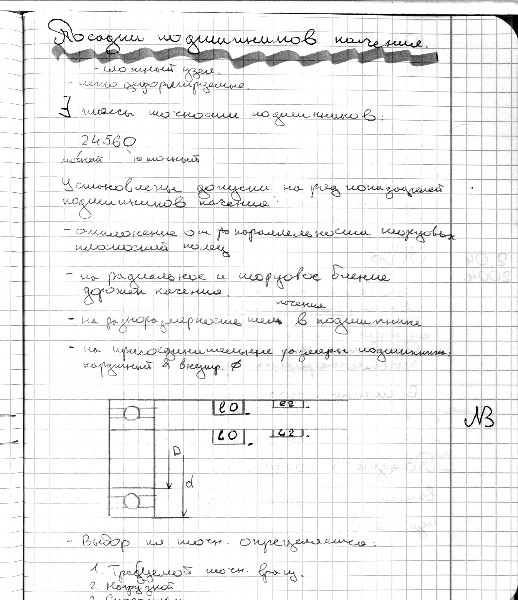 Посадки подшипников качения.
- сложный узел.
- легко деформируемые.
∃ классы точности подшипников:
24560
точный
Установлены допуски на ряд показателей
подшипников качения:
- отклонение от параллельности торцовых
плоскостей колец
- на радиальное и торцовое биение
дорожек качения.
качения
- на разноразмерность тел в подшипнике
- на присоединительные размеры подшипника.
наружный и внутр. ϕ
L0
L0
D
d
NB
- Выбор кл точн. определяется:
1. Требуемой точн. вращ.
2. Нагрузкой